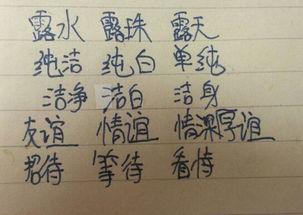 露水 露珠 露天
纯洁 纯白 单纯
洁净 洁白 洁身
友谊 情谊 情深厚谊
招待 等待 看待